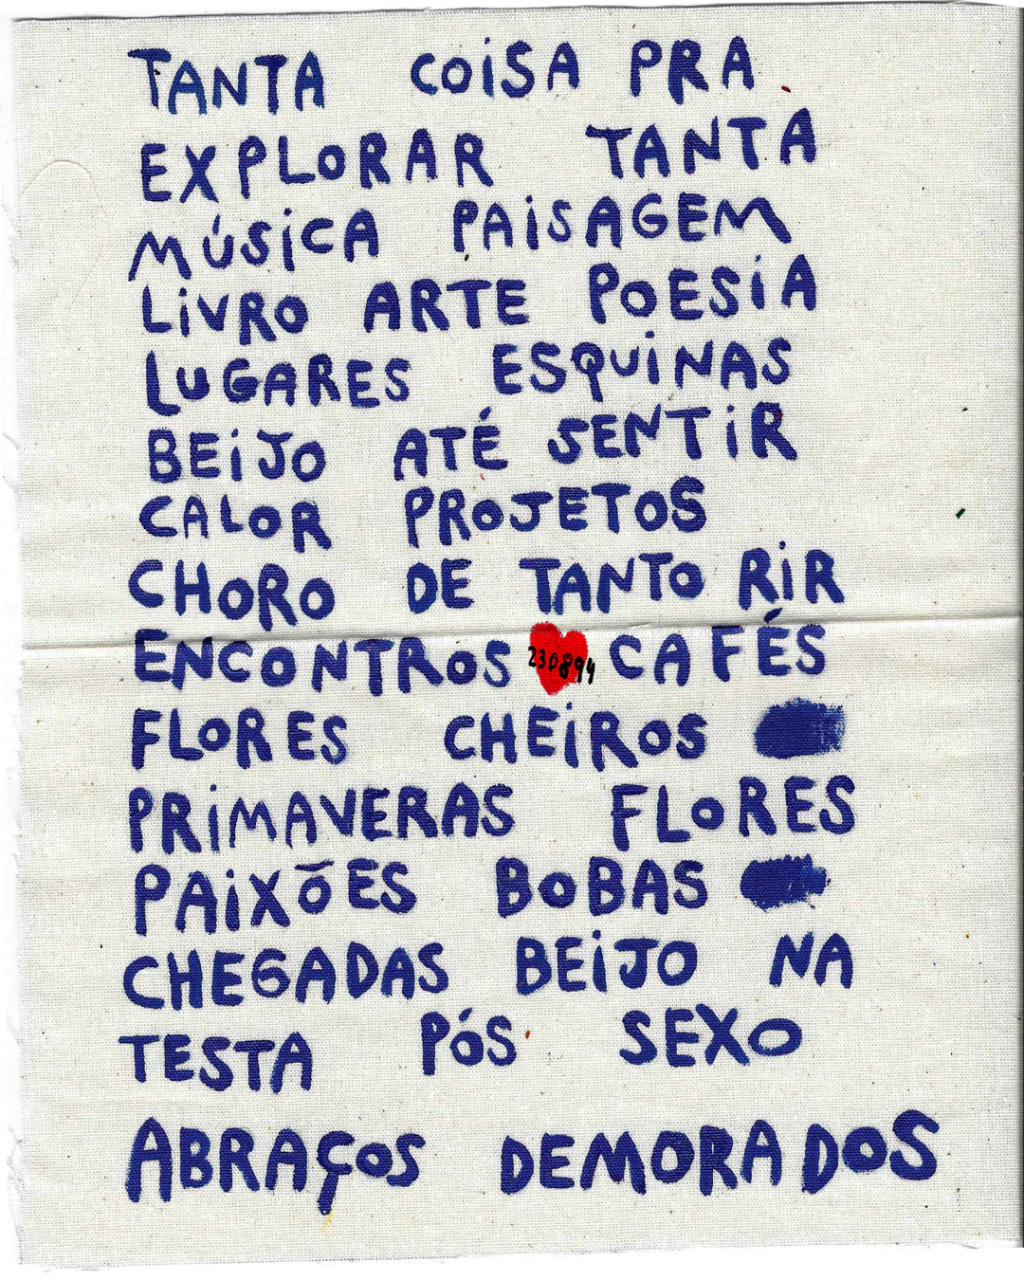 TANTA COISA PRA
EXPLORAR TANTA
MÚSICA PAISAGEM
LIVRO ARTE POESIA
LUGARES ESQUINAS
BEIJO ATÉ SENTIR
CALOR PROJETOS
CHORO DE TANTO RIR
ENCONTROS 230894 CAFÉS
FLORES CHEIROS
PRIMAVERAS FLORES
PAIXÕES BOBAS
CHEGADAS BEIJO NA
TESTA PÓS SEXO
ABRAÇOS DEMORADOS